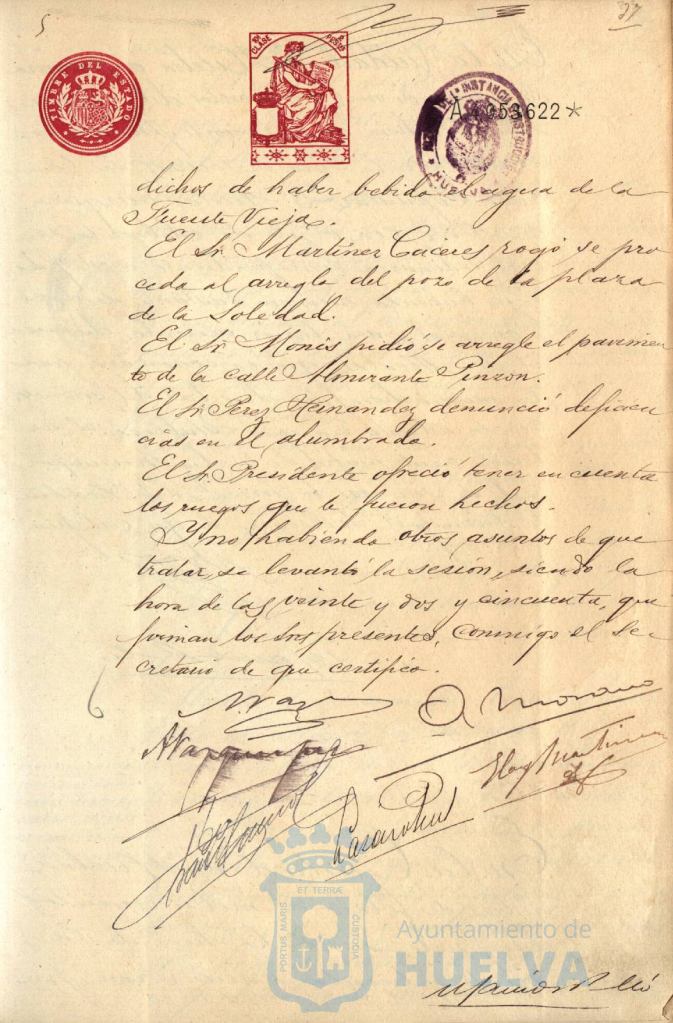 5
37
TIMBRE DEL ESTADO
10ª CLASE
A 053622 *
INSTANCIA
HUELVA
dichos de haber bebido el agua de la
Fuente Vieja.
El Sr. Martinez Cáceres rogó se pro
ceda al arreglo del pozo de la plaza
de la Soledad.
El Sr. Monis pidió se arregle el pavimen
to de la calle Almirante Pinzon.
El Sr. Perez Hernandez denunció deficien
cias en el alumbrado.
El Sr. Presidente ofreció tener en cuenta
los ruegos que le fueron hechos.
Y no habiendo otros asuntos de que
tratar, se levantó la sesión, siendo la
hora de las veinte y dos y cincuenta, que
firman los Sres presentes, conmigo el Se-
cretario de que certifico.
Moreno
Eloy Martinez
PORTUS MARIS ET TERRÆ CUSTODIA
Ayuntamiento de
HUELVA